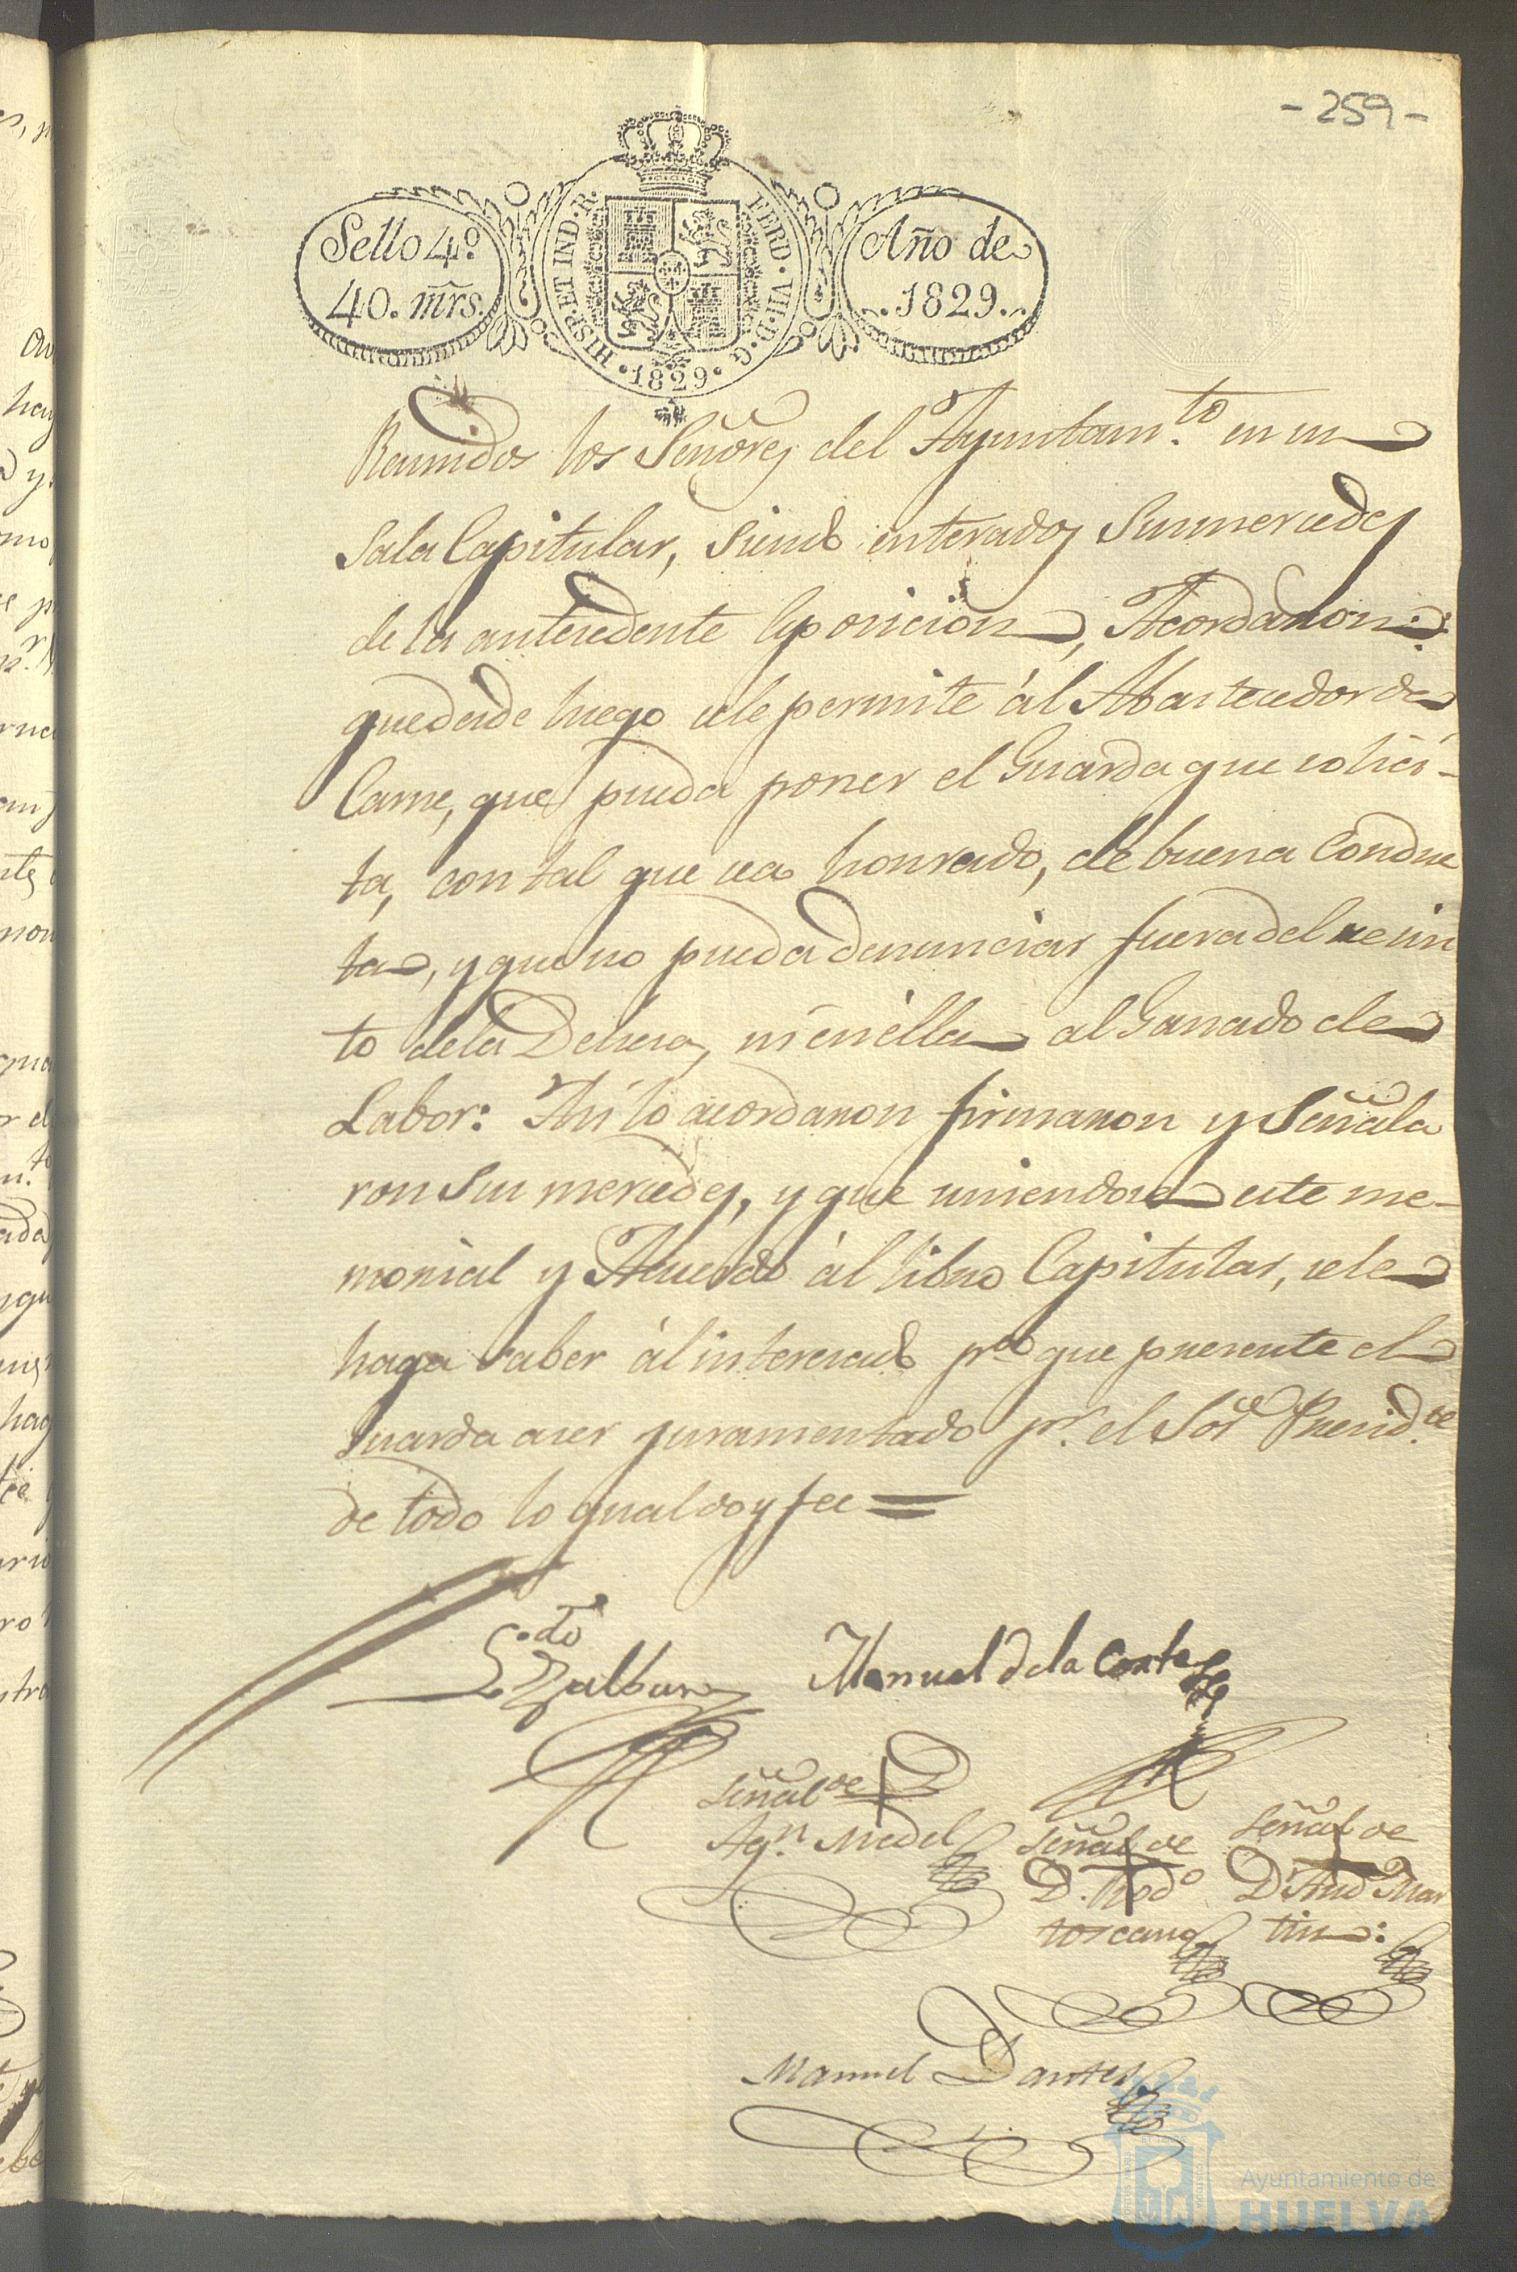 -259-
Sello 4º.
40. mrs.
HISP. ET IND. R. FERD. VII. D. G.
·1829·
Año de
1829.
Reunidos los Señores del Ayuntam.to en su
Sala Capitular, siendo enterados Susmercedes
de la antecedente Esposicion, Acordaron:
que desde luego sele permite ál Abastecedor de
Carne, que pueda poner el Guarda que solici-
ta, con tal que sea honrado, de buena Conduc
ta, y que no pueda denunciar fuera del recin
to dela Dehesa, ni én élla al Ganado de
Labor: Asi lo acordaron firmaron y Señala
ron Sus mercedes, y que uniendose este me-
morial y Acuerdo ál libro Capitular, sele
haga saber ál interesado pª que presente el
Guarda aser juramentado pr. el Sor Presid.te
de todo lo qual doy fee =
Manuel dela Corte
Señal de
Agn. Medel
Señal de
D. Rodº
toscano
Señal de
D Andº Mar
tin:
Manuel
Ayuntamiento de
HUELVA